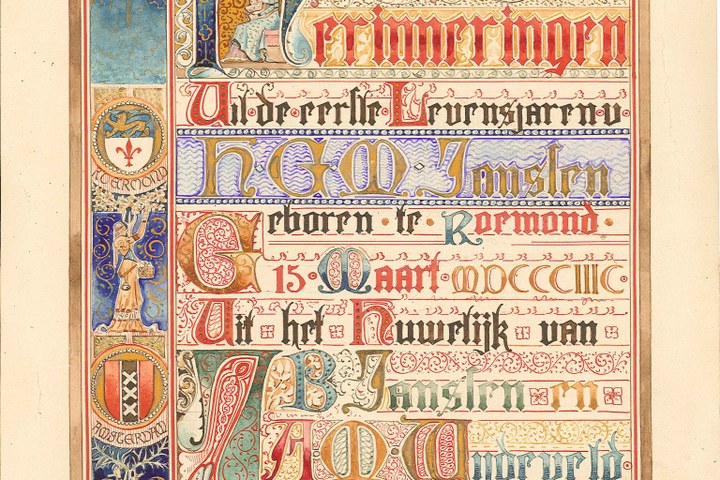 Herinneringen
Uit·de·eerste·Levensjaren·v
H·G·M·Janssen
Geboren·te·Roemond·
15·Maart·MDCCCIIIC·
Uit het Huwelijk van
A B Janssen en
A M
ROERMOND
AMSTERDAM